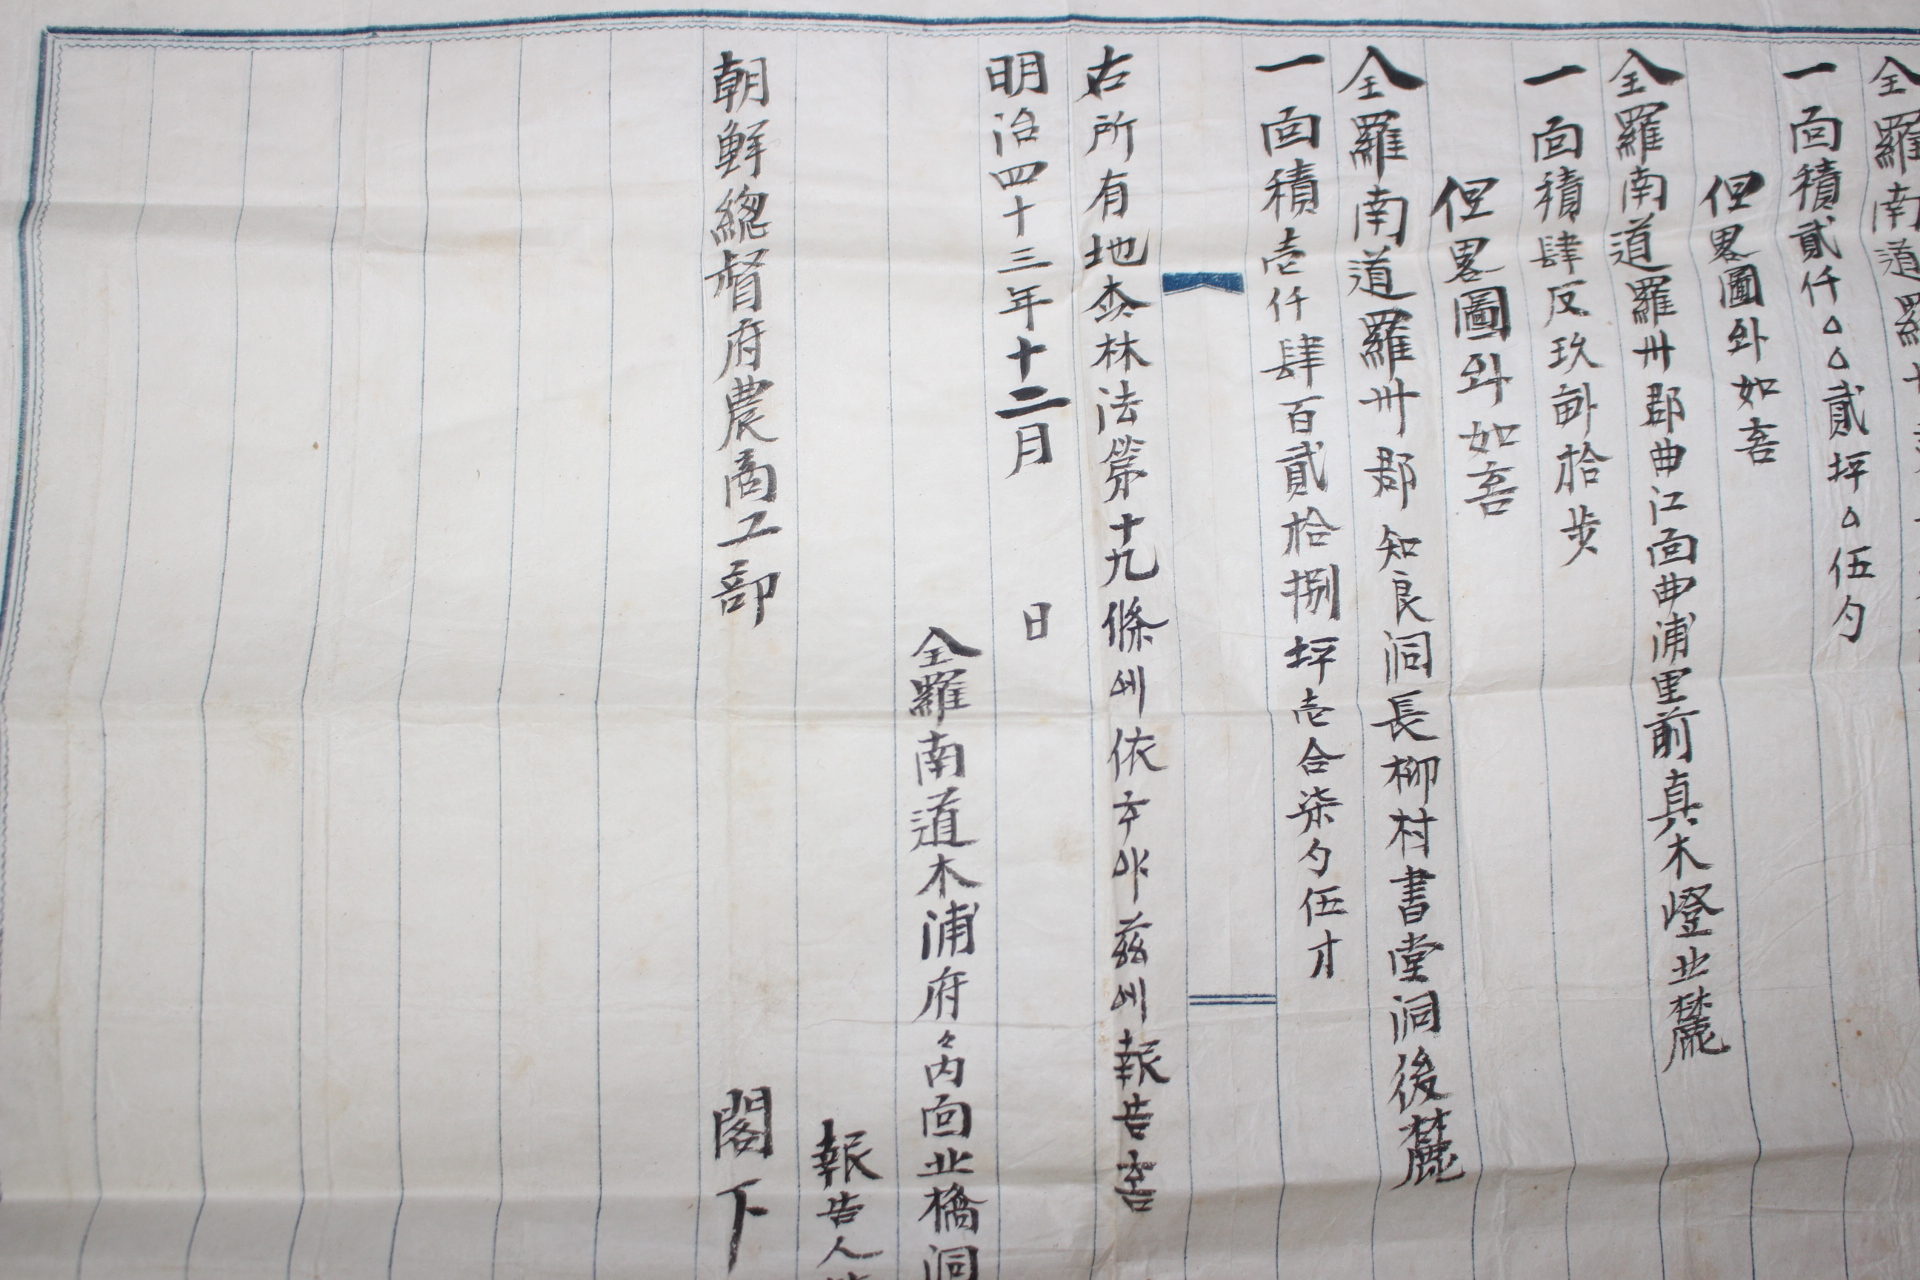 全羅南道羅
一面積貳仟△△貳坪△伍勺
但畧圖와如홈
全羅南道羅州郡曲江面曲浦里前真木嶝北麓
一面積肆反玖畝拾步
但畧圖와如홈
全羅南道羅州郡知良洞長柳村書堂洞後麓
一面積壱仟肆百貳拾捌坪壱合柒勺伍才
右所有地森林法第十九條에依하야茲에報告홈
明治四十三年十二月 日
全羅南道木浦府々內面北橋洞
報告人
朝鮮總督府農商工部 閣下